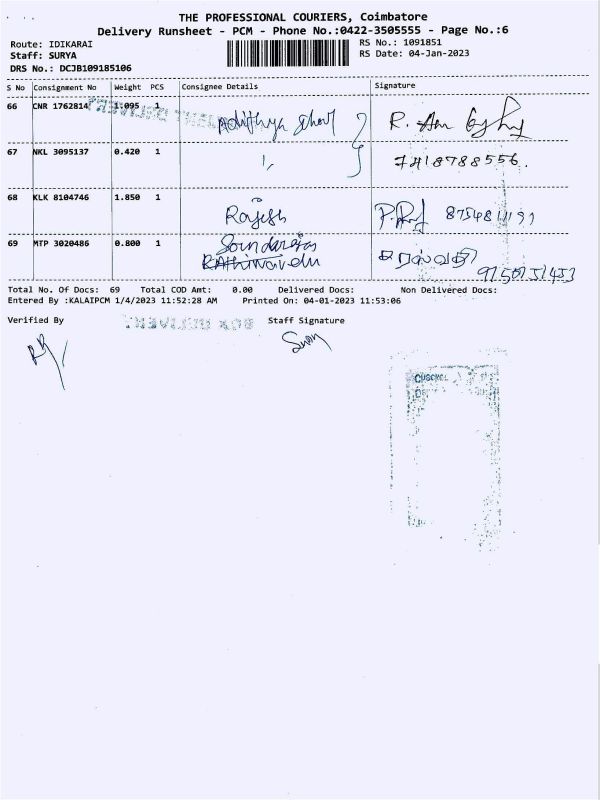 THE PROFESSIONAL COURIERS, Coimbatore
Delivery Runsheet - PCM - Phone No.:0422-3505555 - Page No.:6
Route: IDIKARAI
Staff: SURYA
DRS No.: DCJB109185106
RS No.: 1091851
RS Date: 04-Jan-2023
S No Consignment No Weight PCS Consignee Details Signature
66 CNR 1762814 1.095 1
67 NKL 3095137 0.420 1 7418788556
68 KLK 8104746 1.850 1 Rajesh
69 MTP 3020486 0.800 1 Soundarajan
Total No. Of Docs: 69 Total COD Amt: 0.00 Delivered Docs: Non Delivered Docs:
Entered By :KALAIPCM 1/4/2023 11:52:28 AM Printed On: 04-01-2023 11:53:06
Verified By Staff Signature